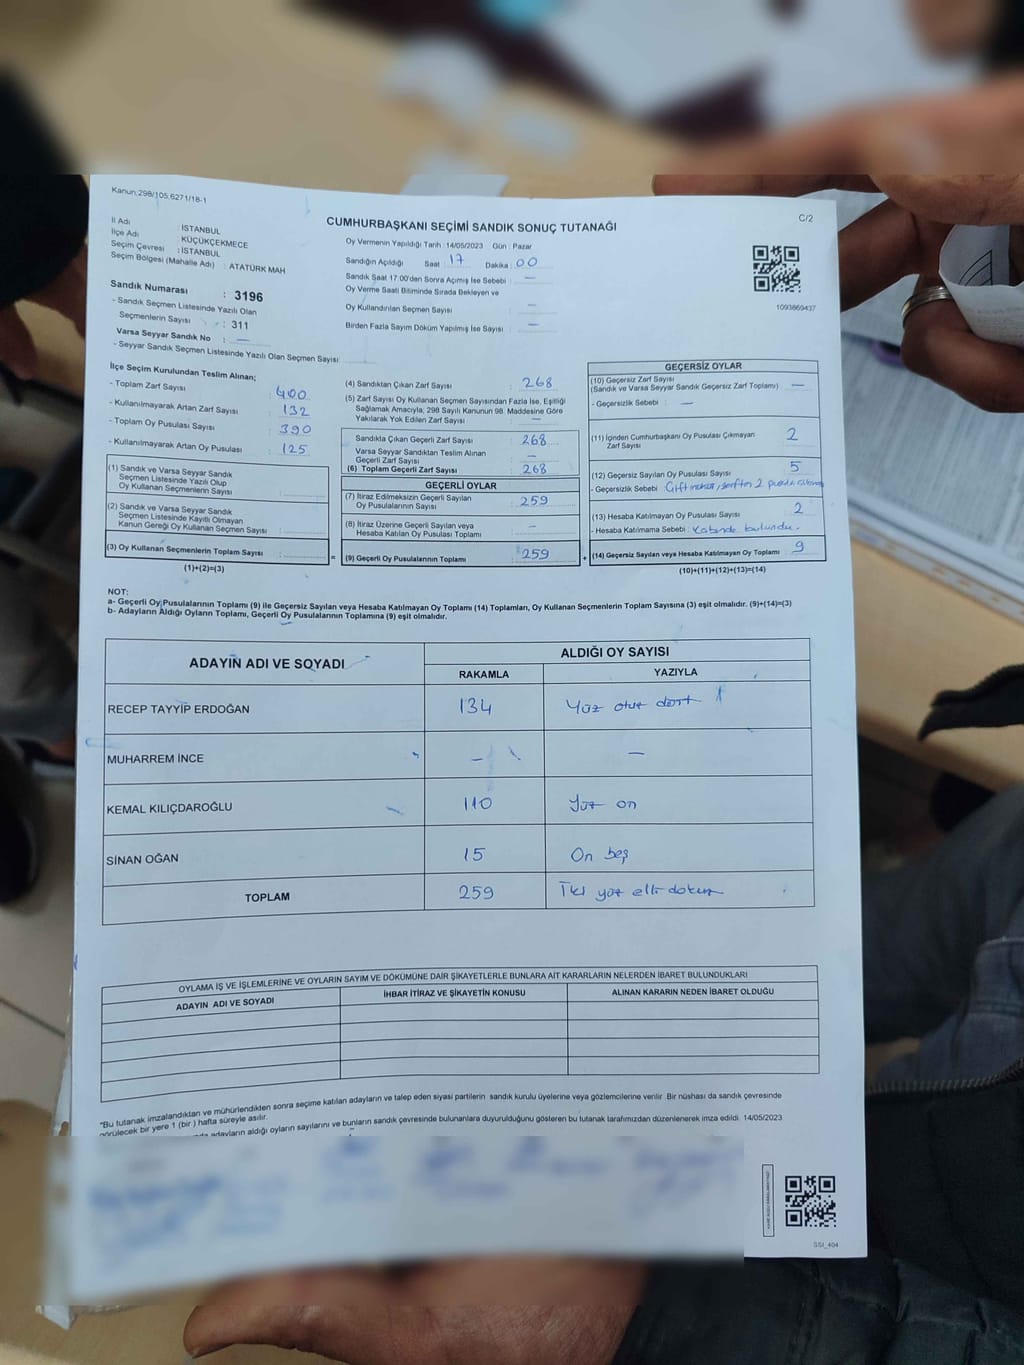 Kanun:298/105,6271/18-1
C/2
CUMHURBAŞKANI SEÇİMİ SANDIK SONUÇ TUTANAĞI
İl Adı : İSTANBUL
İlçe Adı : KÜÇÜKÇEKMECE
Seçim Çevresi : İSTANBUL
Seçim Bölgesi (Mahalle Adı) : ATATÜRK MAH
Sandık Numarası : 3196
- Sandık Seçmen Listesinde Yazılı Olan
Seçmenlerin Sayısı : 311
Varsa Seyyar Sandık No : —
- Seyyar Sandık Seçmen Listesinde Yazılı Olan Seçmen Sayısı
Oy Vermenin Yapıldığı Tarih : 14/05/2023 Gün : Pazar
Sandığın Açıldığı Saat : 17 Dakika : 00
Sandık Saat 17.00'den Sonra Açılmış İse Sebebi : —
Oy Verme Saati Bitiminde Sırada Bekleyen ve
Oy Kullandırılan Seçmen Sayısı : —
Birden Fazla Sayım Döküm Yapılmış İse Sayısı : —
1093869437
İlçe Seçim Kurulundan Teslim Alınan;
- Toplam Zarf Sayısı : 400
- Kullanılmayarak Artan Zarf Sayısı : 132
- Toplam Oy Pusulası Sayısı : 390
- Kullanılmayarak Artan Oy Pusulası : 125
(1) Sandık ve Varsa Seyyar Sandık
Seçmen Listesinde Yazılı Olup
Oy Kullanan Seçmenlerin Sayısı :
(2) Sandık ve Varsa Seyyar Sandık
Seçmen Listesinde Kayıtlı Olmayan
Kanun Gereği Oy Kullanan Seçmen Sayısı :
(3) Oy Kullanan Seçmenlerin Toplam Sayısı :
(1)+(2)=(3)
=
(4) Sandıktan Çıkan Zarf Sayısı : 268
(5) Zarf Sayısı Oy Kullanan Seçmen Sayısından Fazla İse, Eşitliği
Sağlamak Amacıyla, 298 Sayılı Kanunun 98. Maddesine Göre
Yakılarak Yok Edilen Zarf Sayısı : —
Sandıkta Çıkan Geçerli Zarf Sayısı : 268
Varsa Seyyar Sandıktan Teslim Alınan
Geçerli Zarf Sayısı : —
(6) Toplam Geçerli Zarf Sayısı : 268
GEÇERLİ OYLAR
(7) İtiraz Edilmeksizin Geçerli Sayılan
Oy Pusulalarının Sayısı : 259
(8) İtiraz Üzerine Geçerli Sayılan veya
Hesaba Katılan Oy Pusulası Toplamı : —
(9) Geçerli Oy Pusulalarının Toplamı : 259
+
GEÇERSİZ OYLAR
(10) Geçersiz Zarf Sayısı
(Sandık ve Varsa Seyyar Sandık Geçersiz Zarf Toplamı) : —
- Geçersizlik Sebebi : —
(11) İçinden Cumhurbaşkanı Oy Pusulası Çıkmayan
Zarf Sayısı : 2
(12) Geçersiz Sayılan Oy Pusulası Sayısı : 5
- Geçersizlik Sebebi : Çift mühür, zarftan 2 pusula
(13) Hesaba Katılmayan Oy Pusulası Sayısı : 2
- Hesaba Katılmama Sebebi : bulundu.
(14) Geçersiz Sayılan veya Hesaba Katılmayan Oy Toplamı : 9
(10)+(11)+(12)+(13)=(14)
NOT:
a- Geçerli Oy Pusulalarının Toplamı (9) ile Geçersiz Sayılan veya Hesaba Katılmayan Oy Toplamı (14) Toplamları, Oy Kullanan Seçmenlerin Toplam Sayısına (3) eşit olmalıdır. (9)+(14)=(3)
b- Adayların Aldığı Oyların Toplamı, Geçerli Oy Pusulalarının Toplamına (9) eşit olmalıdır.
ADAYIN ADI VE SOYADI
ALDIĞI OY SAYISI
RAKAMLA YAZIYLA
RECEP TAYYİP ERDOĞAN 134 Yüz otuz dört
MUHARREM İNCE — —
KEMAL KILIÇDAROĞLU 110 Yüz on
SİNAN OĞAN 15 On beş
TOPLAM 259 İki yüz elli dokuz
OYLAMA İŞ VE İŞLEMLERİNE VE OYLARIN SAYIM VE DÖKÜMÜNE DAİR ŞİKAYETLERLE BUNLARA AİT KARARLARIN NELERDEN İBARET BULUNDUKLARI
ADAYIN ADI VE SOYADI İHBAR İTİRAZ VE ŞİKAYETİN KONUSU ALINAN KARARIN NEDEN İBARET OLDUĞU
"Bu tutanak imzalandıktan ve mühürlendikten sonra seçime katılan adayların ve talep eden siyasi partilerin sandık kurulu üyelerine veya gözlemcilerine verilir. Bir nüshası da sandık çevresinde
görülecek bir yere 1 (bir) hafta süreyle asılır.
adayların aldığı oyların sayılarını ve bunların sandık çevresinde bulunanlara duyurulduğunu gösteren bu tutanak tarafımızdan düzenlenerek imza edildi. 14/05/2023
SSI_404